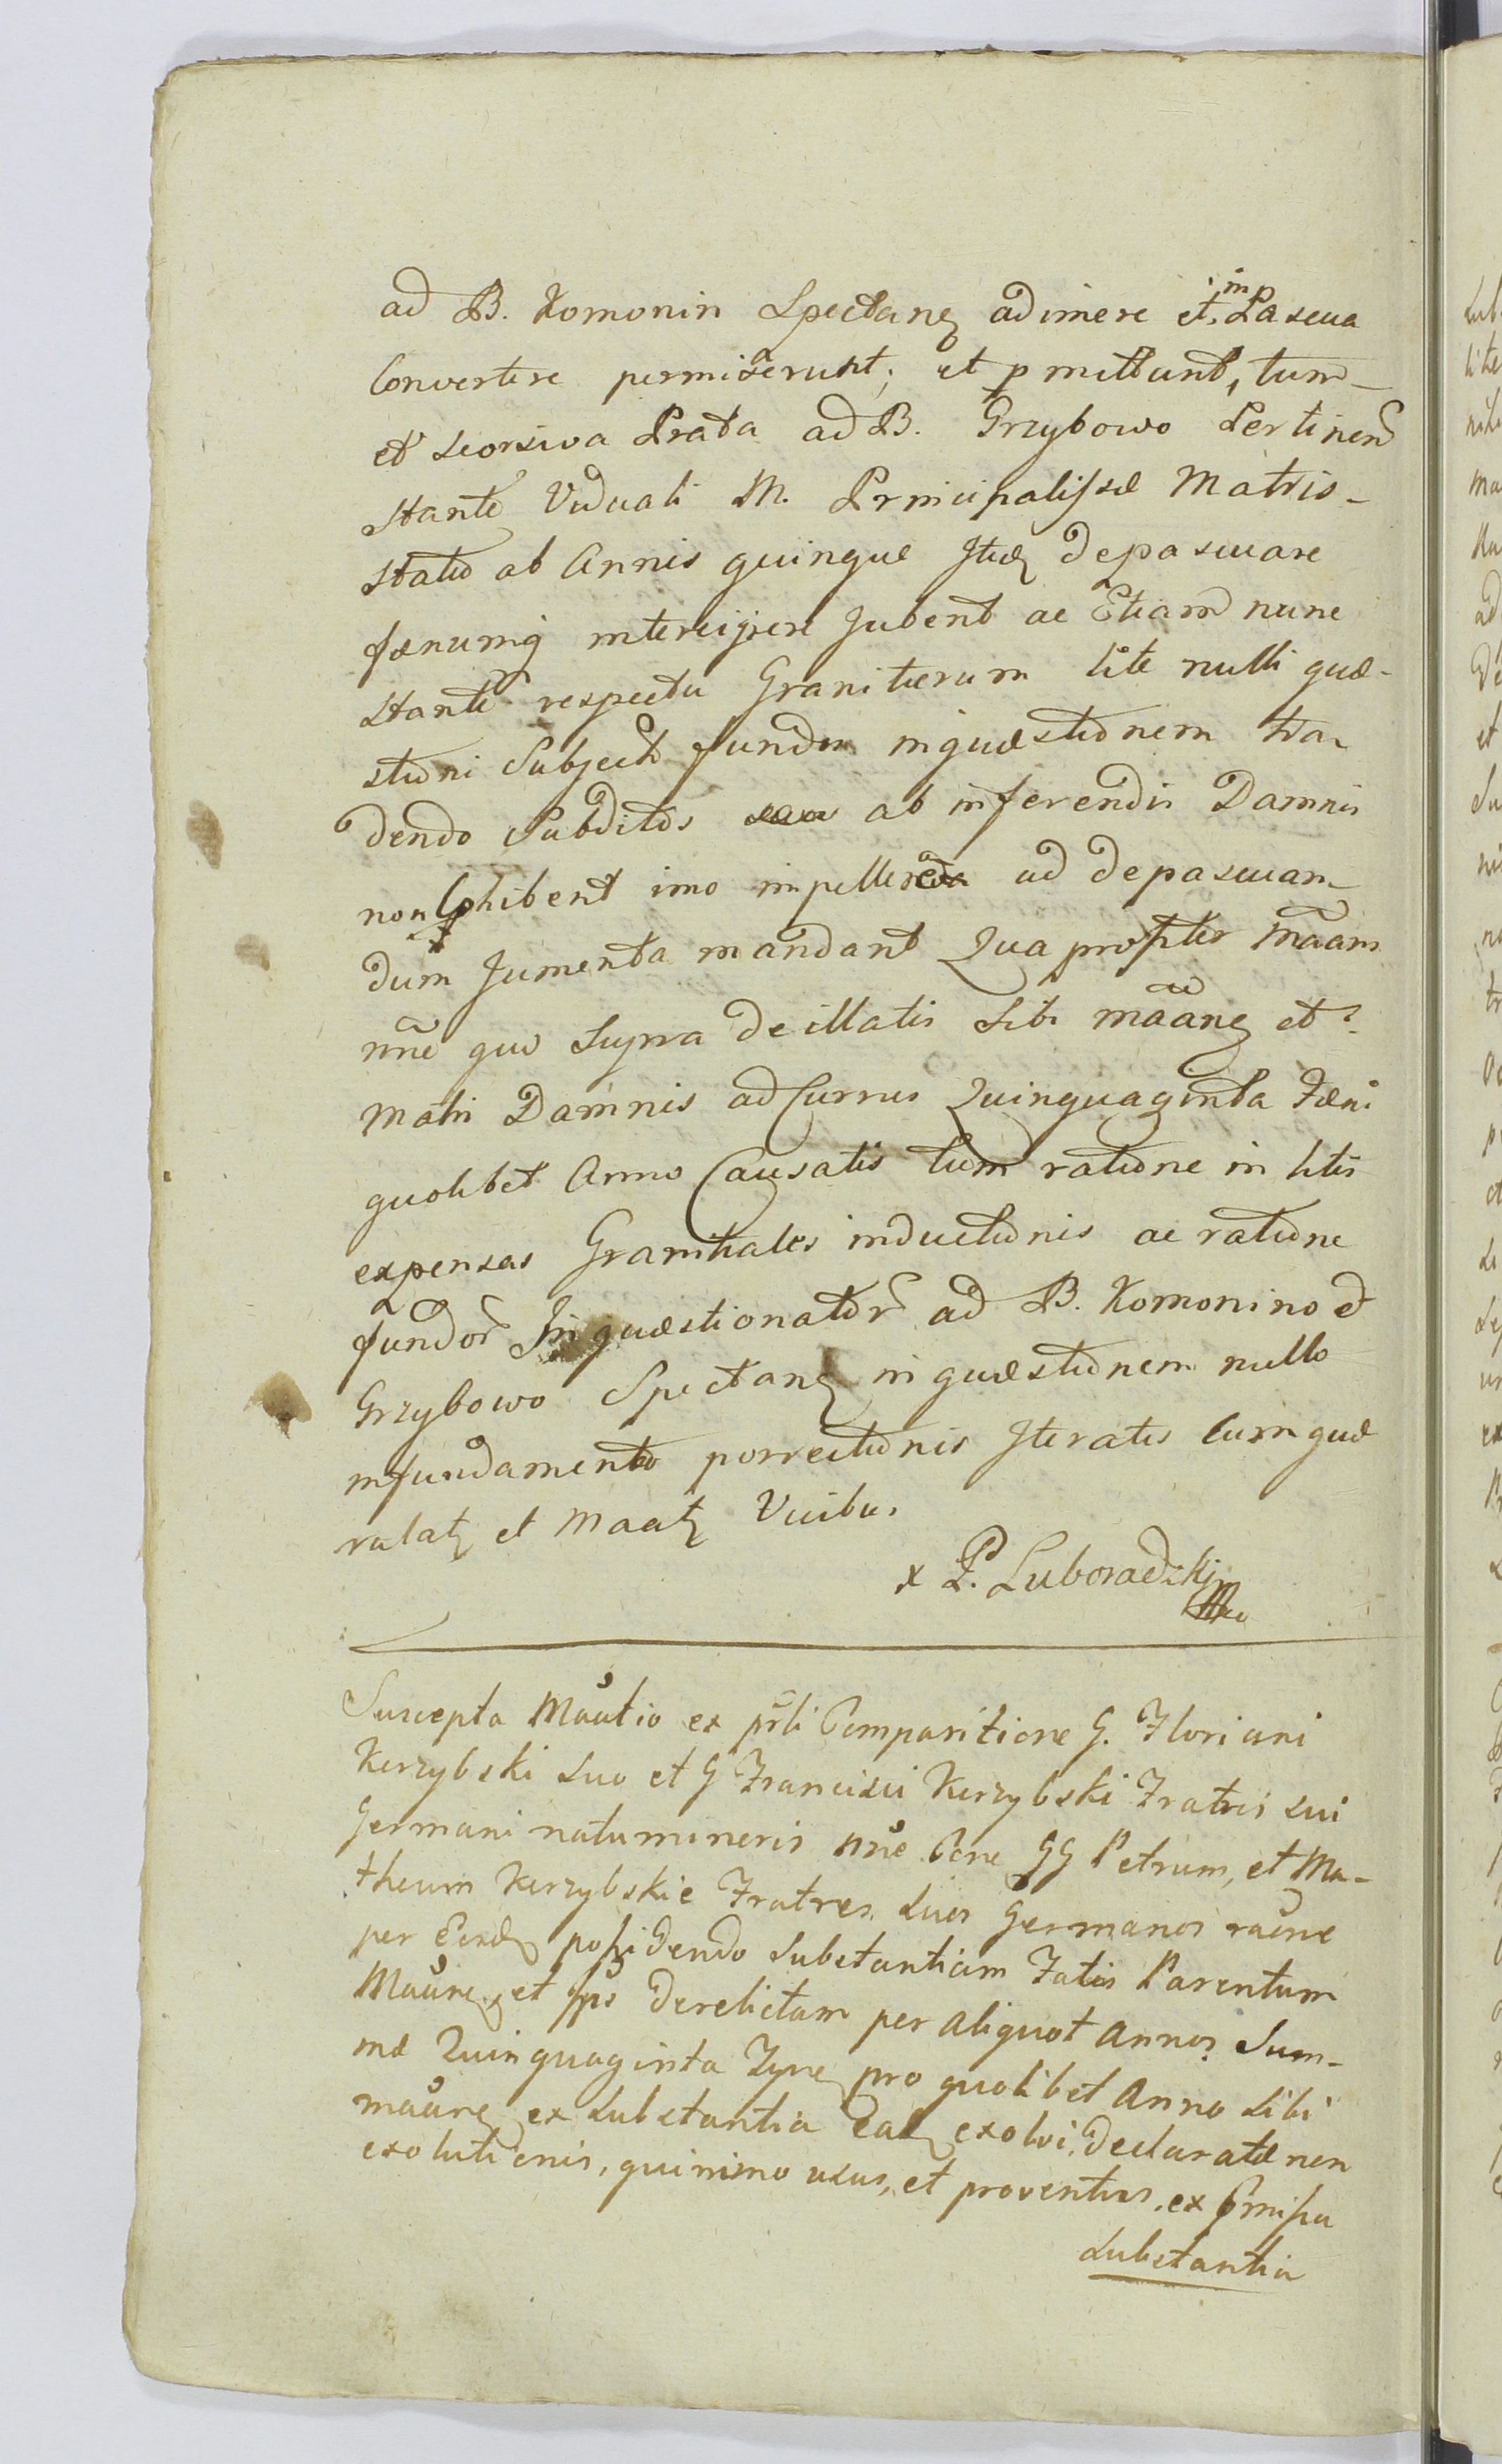 ad B. Komonin Spectanȝ adimere et in Pascua
Convertere permiserunt, et pmittunt, tum
et seorsiva Prata ad B. Grzybowo Pertinen
stante Viduali M. Principalissæ Matris
statu ab Annis quinque Itidȝ depascuare
fænumq intercipere Jubent ac Etiam nunc
stante respectu Granitierum lite nulli quæ-
stioni Subjecto fundos inquæstionem tra-
dendo Subditos ab inferendis Damnis
non Cohibent imo impellere ad depascuan-
dum Jumenta mandant Qua propter Māam
nnē quo Supra de illatis Sibi māanȝ et
Matri Damnis ad Currus Quinquaginta Fæni
quolibet Anno Causatis tum ratione in litis
expensas Granitiales inductionis ac ratione
fundor Inquæstionator ad B. Komonino et
Grzybowo Spectanȝ in quæstionem nullo
infundamento porrectionis Iteratis Cumque
ralatȝ et Maatȝ Vicibus
x P. Luboradzki
Suscepta Maatio ex prli Comparitione G. Floriani
Kerzybski Suo et G Francisci Kerzybski Fratris sui
Germani natumineris nne Cone GG Petrum, et Ma-
theum Kerzybskie Fratres Suos Germanos raone
per Eosdȝ possidendo Substantiam Fatis Parentum
Maanȝ, et Ips Derelictam per aliquot annos Sum-
mæ Quinquaginta Tynȝ pro quolibet Anno Sibi
maanȝ ex Substantia Eadȝ exolvi, declaratæ non
exolutionis, quinimo usus, et proventus, ex pmissa
Substantia